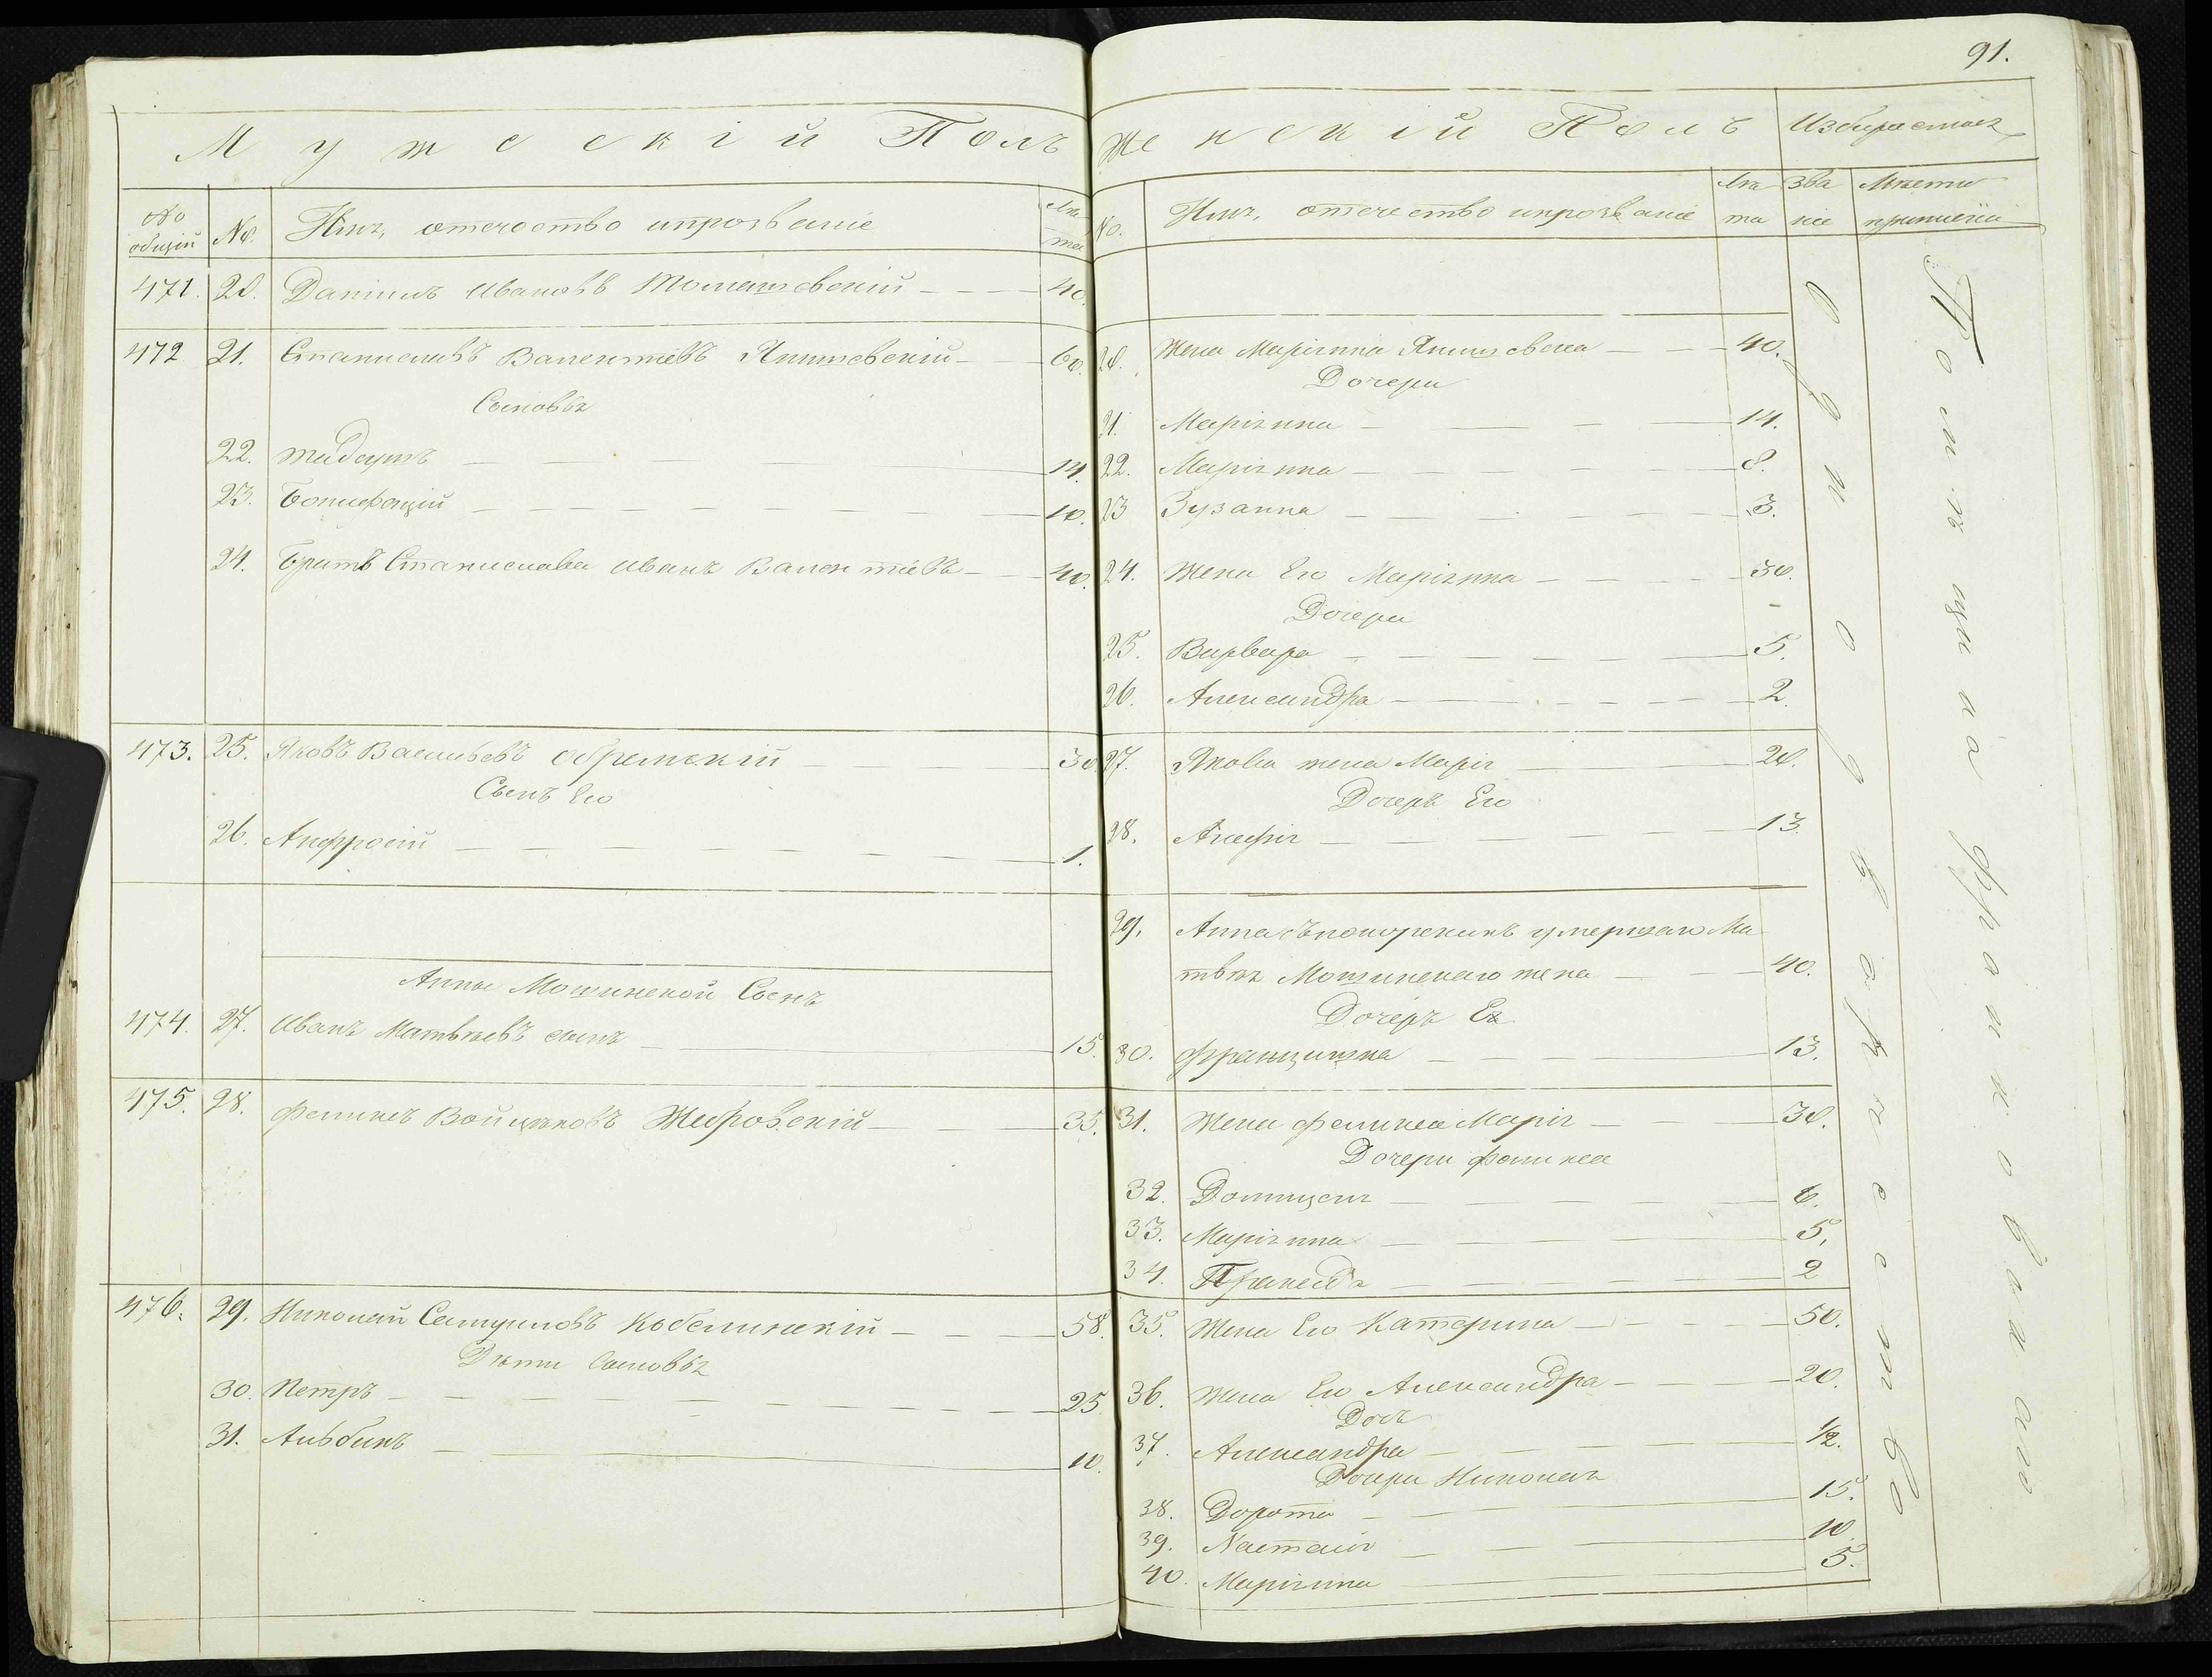 91.
Мужескій Полъ
№ общій
№
Имя, отечество и прозваніе
Лѣта
471. 20. Даніилъ Ивановъ Томашовскій 40.
472 21. Станиславъ Валентіевъ Янишевскій 60.
Сыновья
22. Тадеушъ 14.
23. Бонифацій 10.
24. Братъ Станислава Иванъ Валентіевъ 40.
473. 25. Яковъ Васильевъ Обремскій 30.
Сынъ Его
26. Анфросій 1.
Анны Мошинской Сынъ
474. 27. Иванъ Матвѣевъ сынъ 15.
475. 28. Феликсъ Войцѣховъ Жировскій 35.
476. 29. Николай Самуиловъ Кобелинскій 58.
Дѣти Сыновья
30. Петръ 25
31. Альбинъ 10.
Женскій Полъ
Избираетъ
№.
Имя, отечество и прозваніе
Лѣта
Званіе
Мѣсто
20. Жена Маріянна Янишевска 40.
Дочери
21. Маріянна 14.
22. Маріянна 8.
23 Зузанна 3.
24. Жена Его Маріянна 30.
Дочери
25. Варвара 5.
26. Александра 2.
27. Якова жена Марія 20.
Дочеръ Его
28. Агафія 13.
29. Анна умершаго Ма
твѣя Мошинскаго жена 40.
Дочеръ Ея
30. Францишка 13.
31. Жена Феликса Марія 30.
Дочери Феликса
32. Домицеля 6.
33. Маріянна 5.
34. Пракседа 2
35. Жена Его Катерина 50.
36. Жена Его Александра 20.
Дочь
37. Александра 1/2.
Дочери Николая
38. Дорота 15.
39. Настасія 10.
40. Маріянна 5.
Однодворческое